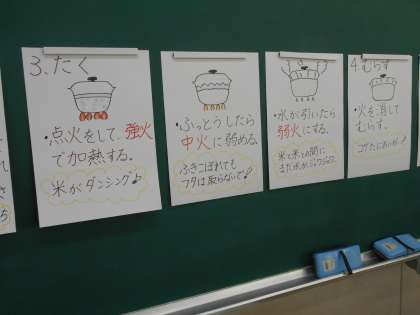 3、たく
・点火をして、強火
で加熱する。
米がダンシング♪
・ふっとうしたら
中火に弱める。
ふきこぼれても
フタは取らないで!
・水が引いたら
弱火にする。
米と米との間に
まだ水が
4.むらす
・火を消して
むらす。